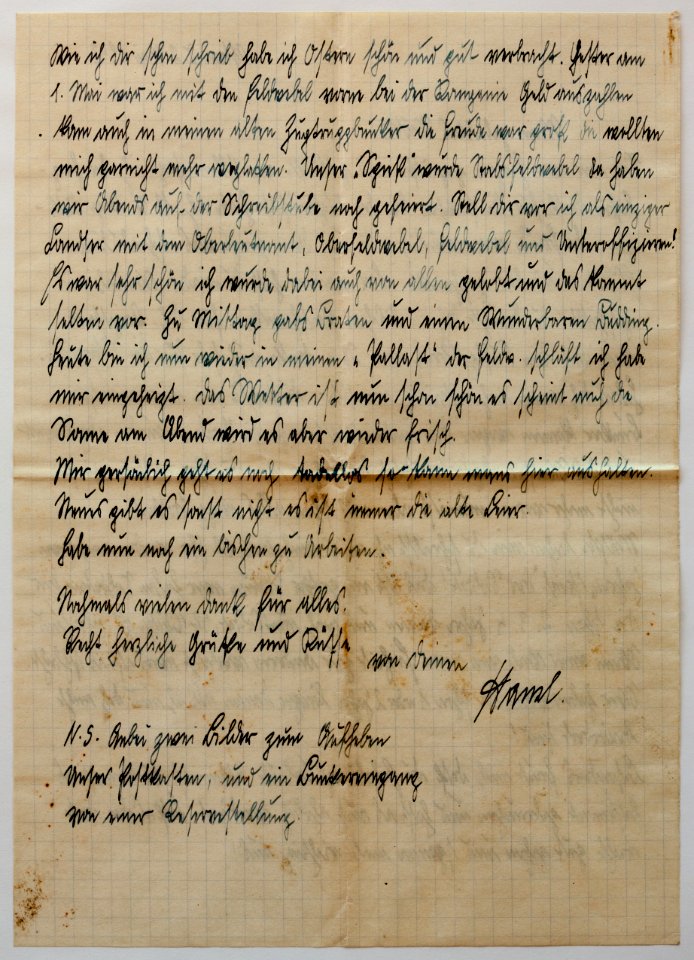 Wie ich dir schon schrieb habe ich Ostern schön und gut verbracht. Gester am
1. Mai war ich mit den Feldwebel vorne bei der Kompenie Geld auszahlen
kam auch in meinen alten Zugtruppbunker die Freude war groß die wollten
mich garnicht mehr weglaßen. Unser „Spieß" wurde Stabsfeldwebel da haben
wir Abends auf der Schreibstube noch gefeiert. Stell dir vor ich als einziger
Landser mit dem Oberleutnant, Oberfeldwebel, Feldwebel und Unteroffizieren!
Es war sehr schön ich wurde dabei auch von allen gelobt und das kommt
selten vor. Zu Mittag gabs Braten und einen Wunderbaren Pudding.
Heute bin ich nun wieder in meinen „Pallast" der Feldw. schläft ich habe
mir eingeheizt. das Wetter ist nun schon schön es scheint auch die
Sonne am Abend wird es aber wieder frisch.
Mir persönlich geht es noch tadellos so kann mans hier aushalten.
Neues gibt es sonst nicht es ist immer die alte Leier.
Habe nun noch ein bischen zu Arbeiten.
Nochmals vielen dank für alles.
Recht herzliche Grüße und Küsse
von deinen
Hansl.
N.S. Anbei zwei Bilder zum Aufheben
Unser Postkasten, und ein Bunkereingang
von einer Reservestellung